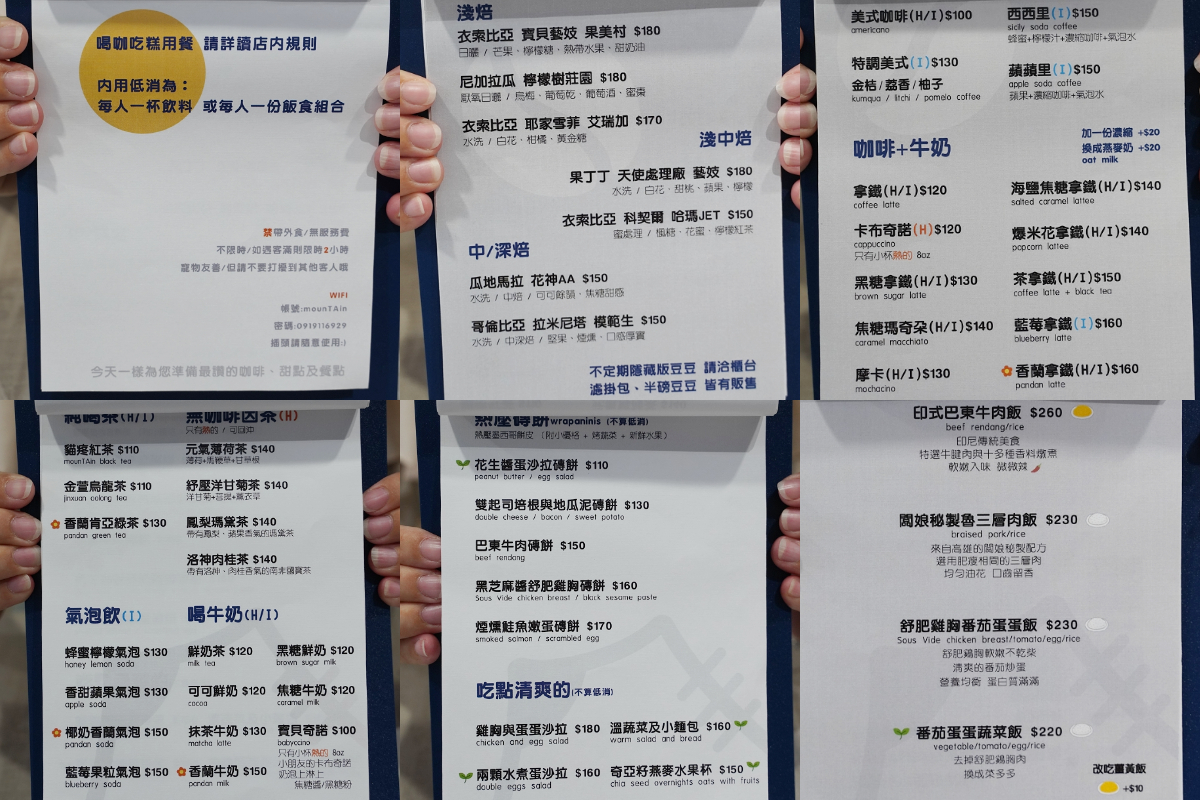 喝咖吃糕用餐 請詳讀店內規則
內用低消為：
每人一杯飲料 或每人一份飯食組合
禁帶外食/無服務費
不限時/如遇客滿則限時2小時
寵物友善/但請不要打擾到其他客人哦
WIFI
帳號:mounTAin
密碼:0919116929
插頭請隨意使用:)
今天一樣為您準備最讚的咖啡、甜點及餐點
淺焙
衣索比亞 寶貝藝妓 果美村 $180
日曬 / 芒果、檸檬糖、熱帶水果、甜奶油
尼加拉瓜 檸檬樹莊園 $180
厭氧日曬 / 烏梅、葡萄乾、葡萄酒、蜜棗
衣索比亞 耶家雪菲 艾瑞加 $170
水洗 / 白花、柑橘、黃金糖
淺中焙
果丁丁 天使處理廠 藝妓 $180
水洗 / 白花、甜桃、蘋果、檸檬
衣索比亞 科契爾 哈瑪JET $150
蜜處理 / 楓糖、花蜜、檸檬紅茶
中/深焙
瓜地馬拉 花神AA $150
水洗 / 中焙 / 可可餘韻、焦糖甜感
哥倫比亞 拉米尼塔 模範生 $150
水洗 / 中深焙 / 堅果、煙燻、口感厚實
不定期隱藏版豆豆 請洽櫃台
濾掛包、半磅豆豆 皆有販售
美式咖啡(H/I)$100
americano
特調美式(I)$130
金桔/荔香/柚子
kumqua / litchi / pomelo coffee
西西里(I)$150
sicily soda coffee
蜂蜜+檸檬汁+濃縮咖啡+氣泡水
蘋蘋里(I)$150
apple soda coffee
蘋果+濃縮咖啡+氣泡水
咖啡+牛奶
加一份濃縮 +$20
換成燕麥奶 +$20
oat milk
拿鐵(H/I)$120
coffee latte
卡布奇諾(H)$120
cappuccino
只有小杯熱的 8oz
黑糖拿鐵(H/I)$130
brown sugar latte
焦糖瑪奇朵(H/I)$140
caramel macchiato
摩卡(H/I)$130
mochacino
海鹽焦糖拿鐵(H/I)$140
salted caramel lattee
爆米花拿鐵(H/I)$140
popcorn lattee
茶拿鐵(H/I)$150
coffee latte + black tea
藍莓拿鐵(I)$160
blueberry latte
香蘭拿鐵(H/I)$160
pandan latte
純喝茶(H/I)
貓疼紅茶 $110
mounTAin black tea
金萱烏龍茶 $110
jinxuan oolong tea
香蘭肯亞綠茶 $130
pandan green tea
無咖啡因茶(H)
只有熱的 / 可回沖
元氣薄荷茶 $140
薄荷+馬鞭草+甘草根
紓壓洋甘菊茶 $140
洋甘菊+菩提+薰衣草
鳳梨瑪黛茶 $140
帶有鳳梨、蘋果香氣的瑪黛茶
洛神肉桂茶 $140
帶有洛神、肉桂香氣的南非國寶茶
氣泡飲(I)
蜂蜜檸檬氣泡 $130
honey lemon soda
香甜蘋果氣泡 $130
apple soda
椰奶香蘭氣泡 $150
pandan soda
藍莓果粒氣泡 $150
blueberry soda
喝牛奶(H/I)
鮮奶茶 $120
milk tea
可可鮮奶 $120
cocoa
抹茶牛奶 $130
matcha latte
香蘭牛奶 $150
pandan milk
黑糖鮮奶 $120
brown sugar milk
焦糖牛奶 $120
caramel milk
寶貝奇諾 $100
babyccino
只有小杯熱的 8oz
小朋友的卡布奇諾
奶泡上淋上
焦糖醬/黑糖粉
熱壓磚餅wrapaninis (不算低消)
熱壓墨西哥餅皮 (附小優格 + 烤蔬菜 + 新鮮水果)
花生醬蛋沙拉磚餅 $110
peanut butter / egg salad
雙起司培根與地瓜泥磚餅 $130
double cheese / bacon / sweet potato
巴東牛肉磚餅 $150
beef rendang
黑芝麻醬舒肥雞胸磚餅 $160
Sous Vide chicken breast / black sesame paste
煙燻鮭魚嫩蛋磚餅 $170
smoked salmon / scrambled egg
吃點清爽的(不算低消)
雞胸與蛋蛋沙拉 $180
chicken and egg salad
溫蔬菜及小麵包 $160
warm salad and bread
兩顆水煮蛋沙拉 $160
double eggs salad
奇亞籽燕麥水果杯 $150
chia seed overnights oats with fruits
印式巴東牛肉飯 $260
beef rendang/rice
印尼傳統美食
特選牛腱肉與十多種香料燉煮
軟嫩入味 微微辣
闆娘秘製魯三層肉飯 $230
braised pork/rice
來自高雄的闆娘秘製配方
選用肥瘦相間的三層肉
均勻油花 口齒留香
舒肥雞胸番茄蛋蛋飯 $230
Sous Vide chicken breast/tomato/egg/rice
舒肥雞胸軟嫩不乾柴
清爽的番茄炒蛋
營養均衡 蛋白質滿滿
番茄蛋蛋蔬菜飯 $220
vegetable/tomato/egg/rice
去掉舒肥雞胸肉
換成菜多多
改吃薑黃飯
+$10